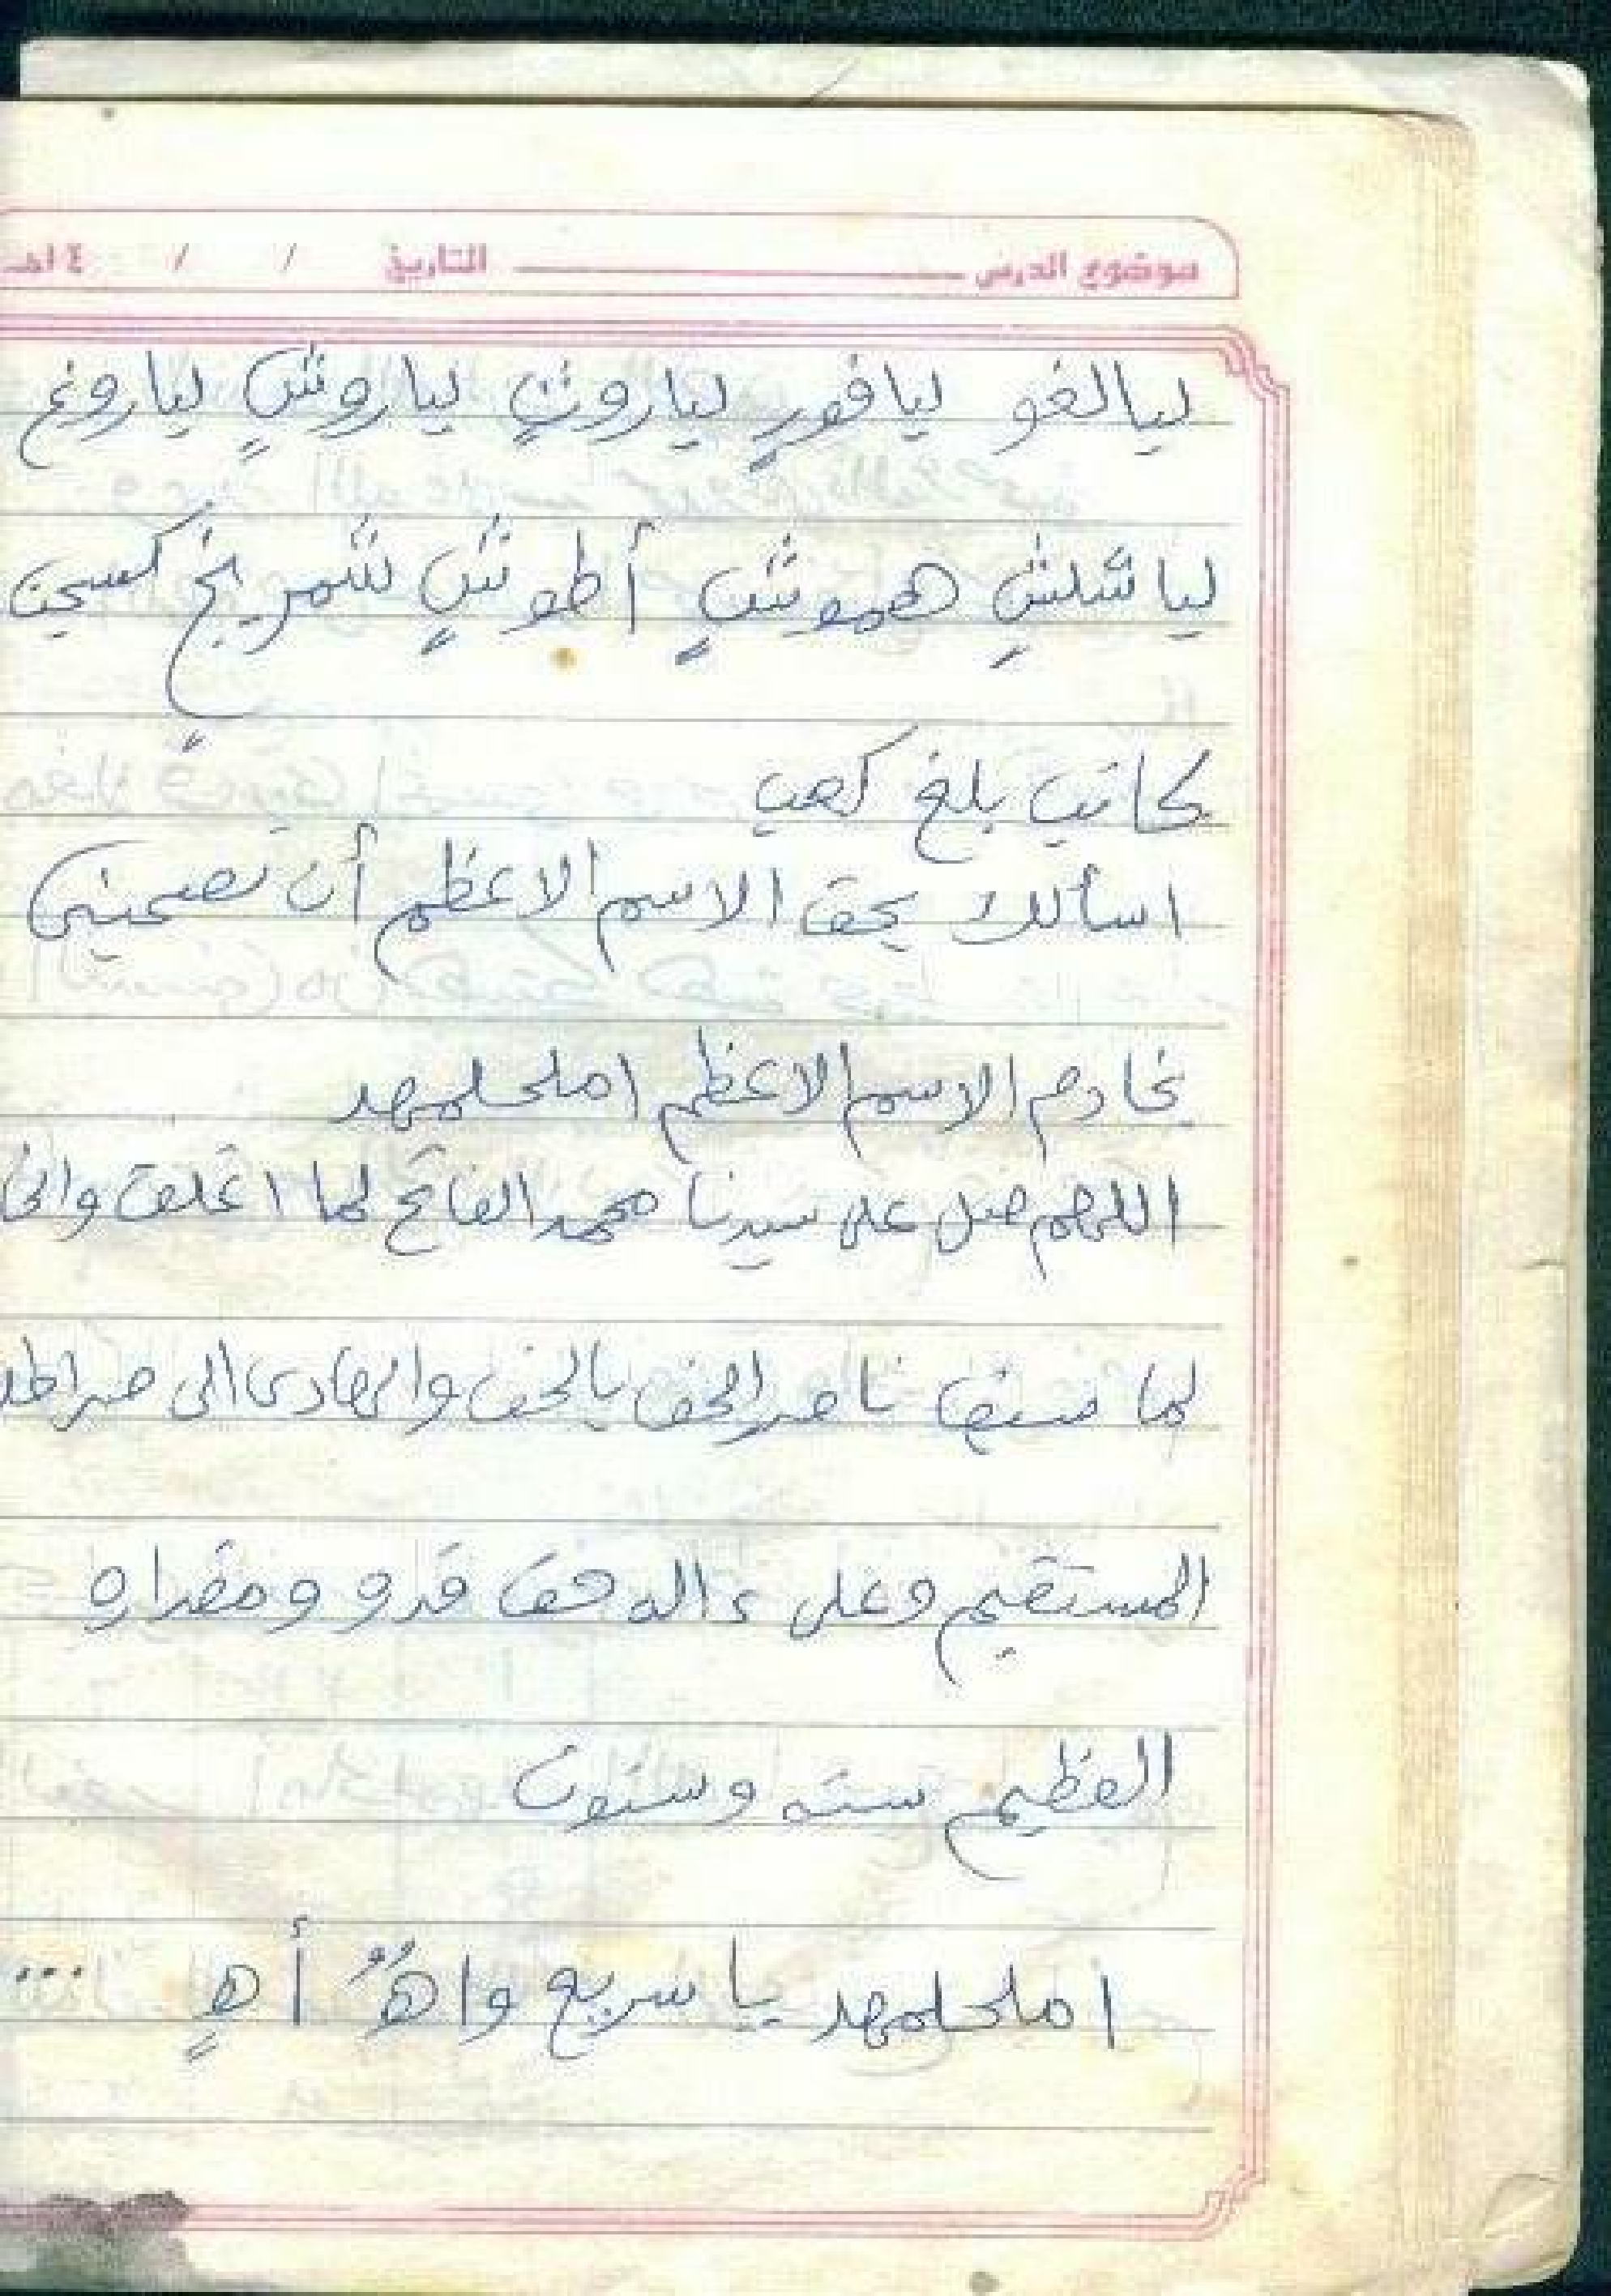 موضوع الدرس التاريخ / / ١٤هـ
ليالغو ليافورٍ لياروثٍ لياروشٍ لياروغ
لياشلشٍ هموشٍ أطوشٍ شمريخٍ
بلغ كعب
اسألك بحق الاسم الاعظم أن
بخادم الاسم الاعظم املحلمهد
اللهم صل على سيدنا محمد الفاتح لما اغلق
لما سبق ناصر الحق بالحق والهادى الى صراطك
المستقيم وعلى ءاله حق قدره ومقداره
العظيم سته وستون
املحلمهد يا سريع واهٌ أهٍ ...